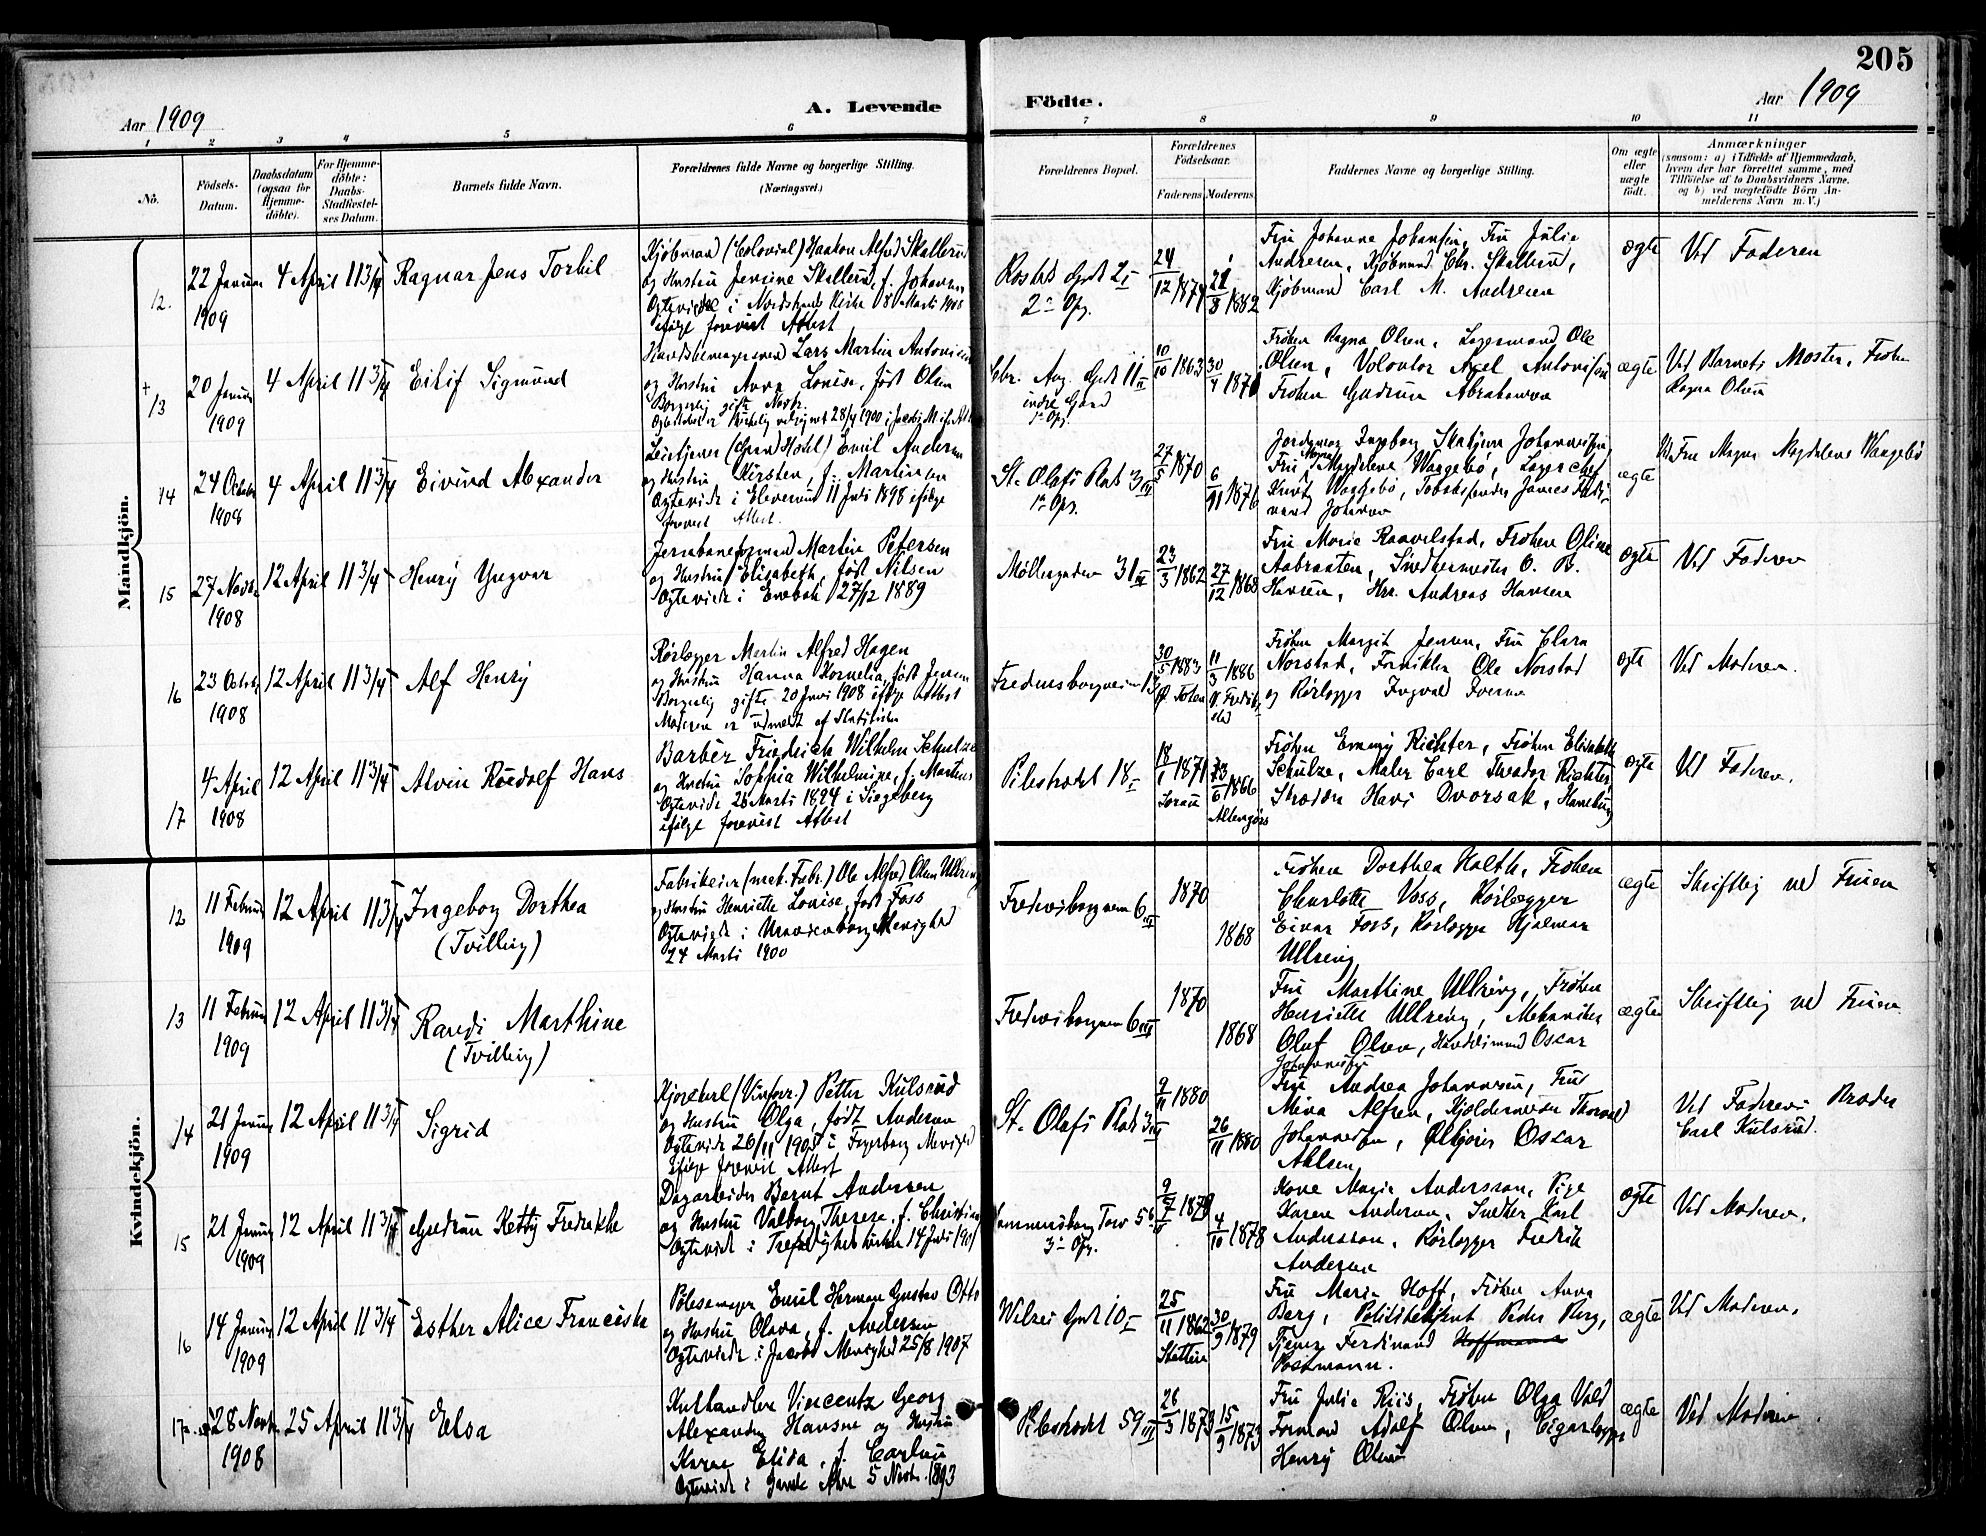 205
Aar 1909
A. Levende
Födte.
Aar 1909
1 2 3 4 5 6 7 8 9 10 11
No.
Födsels-Datum.
Daabsdatum (ogsaa for Hjemme-döbte).
For Hjemme-döbte: Daabs-Stadfæstel-ses Datum.
Barnets fulde Navn.
Forældrenes fulde Navne og borgerlige Stilling.
(Næringsvei.)
Forældrenes Bopæl.
Forældrenes Födselsaar.
Faderens
Moderens
Faddernes Navne og borgerlige Stilling.
Om ægte eller uægte födt.
Anmærkninger
(saasom: a) i Tilfælde af Hjemmedaab,
hvem der har forrettet samme, med
Tilföielse af to Daabsvidners Navne.
og b) ved uægtefödte Börn An-
melderens Navn m. V.)
Mandkjön.
12. 22 Januar 1909 4 April 11 3/4 Ragnar Jens Torkil
Kjøbmand (Colonial) Haakon Alfred Skallerud
og Hustru Jensine Skallerud, f. Johansen
Ogteviede i Nordstrands Kirke 8 Marts 1908
ifølge forevist Attest
2 Opg.
24/12 1879 1882
Fru Johanne Johansen, Fru Julie
Andresen, Kjøbmand Chr. Skallerud,
Kjøbmand Carl M. Andresen
ægte Ved Faderen
+ 13 20 Januar 1909 4 April 11 3/4 Eilif Sigmund
Lars Martin Antonisen
og Hustru Anna Louise, født Olsen
Borgerlig gifte
Chr. Aug. Gade 11 II
indre Gaard
1 Opg.
10/10 1863 30/4 1871
Frøken Ragna Olsen, Lagermand Ole
Olsen, Volontør Axel Antonisen
Frøken Gudrun Abrahamsen
ægte Ved Barnets Moster, Frøken
Ragna Olsen
14 24 Octbr 1908 4 April 11 3/4 Eivind Alexander
(Grand Hotel) Emil Andersen
og Hustru Kirsten, f. Martinsen
Ogteviede i Elverum 11 Juli 1898 ifølge
forevist Attest.
St. Olafs Plads 3 III
1 Opg.
27/5 1870 6/11 1876
Jordemor Ingeborg Johannesen,
Fru Magna Magdalene Waagebø, Lagerchef
Waagebø, James Ferdi-
nand Johansen
ægte Ved Fru Magna Magdalene Waagebø
15 27 Novbr 1908 12 April 11 3/4 Henry Yngvar
Jernbaneformand Martin Petersen
og Hustru Elisabeth, født Nilsen
Ogteviede i Enebak 27/12 1889
Møllergaden 31 III
23/3 1862 27/12 1868
Fru Marie Raavelstad, Frøken Oline
Aabraaten, Snedkermester O. B.
Hansen, Hrr. Andreas Hansen
ægte Ved Faderen
16 23 Octbr 1908 12 April 11 3/4 Alf Henry
Rørlægger Martin Alfred Hagen
og Hustru Hanna Kornelia, født Jensen
Borgerlig gifte 20 Juni 1908 ifølge Attest
Moderen er udmeldt af Statskirken
Fredensborgveien
30/5 1883 Ø. Toten 11/3 1886
Frøken Margit Jensen, Fru Clara
Norstad, Fornikler Ole Norstad
og Rørlægger Ingvald Iversen
ægte Ved Moderen.
17 4 April 1908 12 April 11 3/4 Alvin Ruedolf Hans
Barber Friedrich Wilhelm Schulze
og Hustru Sophia Wilhelmine, f. Martens
Ogteviede 26 Marts 1894 i Siegeberg
ifølge forevist Attest
Pilestrædet 18
18/1 1871 Sorau 1866
Frøken Emmy Richter, Frøken Elisabeth
Schulze, Maler Carl Theodor Richter,
Skrædder Hans Dvorsak, Hamburg
ægte Ved Faderen.
Kvindekjön.
12 11 Februar 1909 12 April 11 3/4 Ingeborg Dorthea
(Tvilling)
Fabrikeier (mek. Fabr.) Ole Alfred Olsen Ullring
og Hustru Henriette Louise, født Foss
Ogteviede i Uranienborg Menighed
24 Marts 1900
Fredensborgveien 6 III
1870 1868
Frøken Dorthea Holth, Frøken
Charlotte Voss, Rørlægger
Einar Foss, Rørlægger Hjalmar
Ullring
ægte Skriftlig ved Fruen
13 11 Februar 1909 12 April 11 3/4 Randi Marthine
(Tvilling)
Fredensborgveien 6 III
1870 1868
Fru Marthine Ullring, Frøken
Henriette Ullring, Mekaniker
Oluf Olsen, Handelsmand Oscar
Johannesen
ægte Skriftlig ved Fruen
14 21 Januar 1909 12 April 11 3/4 Sigrid
Kjørekarl (Vinforr.) Petter Kulsrud
og Hustru Olga, født Andersen
Ogteviede 26/11 1905 i Fagerborg Menighed
ifølge forevist Attest
St. Olafs Plads 3 III
9/11 1880 26/11 1880
Fru Andrea Johannesen, Fru
Mina Alfsen, Thorvald
Johannesen, Oscar
Ahlsen
Ved Faderens Broder
Carl Kulsrud.
15 21 Januar 1909 12 April 11 3/4 Gudrun Ketty Fredrikke
Dagarbeider Bernt Andersen
og Hustru Valborg Therese, f. Christiansen
Ogteviede i Trefoldigheds Kirken 14 Juli
Hammersborg Torv 5
3 Opg.
4/10 1878
Kone Marie Andersson, Pige
Karen Andersen, Snedker Karl
Andersson, Rørlægger Fredrik
Andersen
ægte Ved Moderen.
16 14 Januar 1909 12 April 11 3/4 Esther Alice Franciska
Pølsemager Emil Herman Gustav Otto
og Hustru Olava, f. Andersen
Ogteviede i Jacobs Menighed 25/8 1907
Wilses Gade 10
25/11 1862 Stettin 30/9 1879
Fru Marie Hoff, Frøken Anna
Berg, Politibetjent Peder Berg,
Tjener Ferdinand Hoffmann
Possmann.
ægte Ved Moderen.
17 28 Novbr 1908 25 April 11 3/4 Elsa
Kulhandler Vincentz Georg
Alexander Hansen og Hustru
Karen Elida, f. Carlsen
Ogteviede i Gamle Aker 5 Novbr. 1893
Pilestrædet 59 III
26/3 1873 15/9 1873
Fru Julie Riis, Frøken Olga Vold
Formand Adolf Olsen, Cigarlægger
Henry Olsen
ægte Ved Moderen.